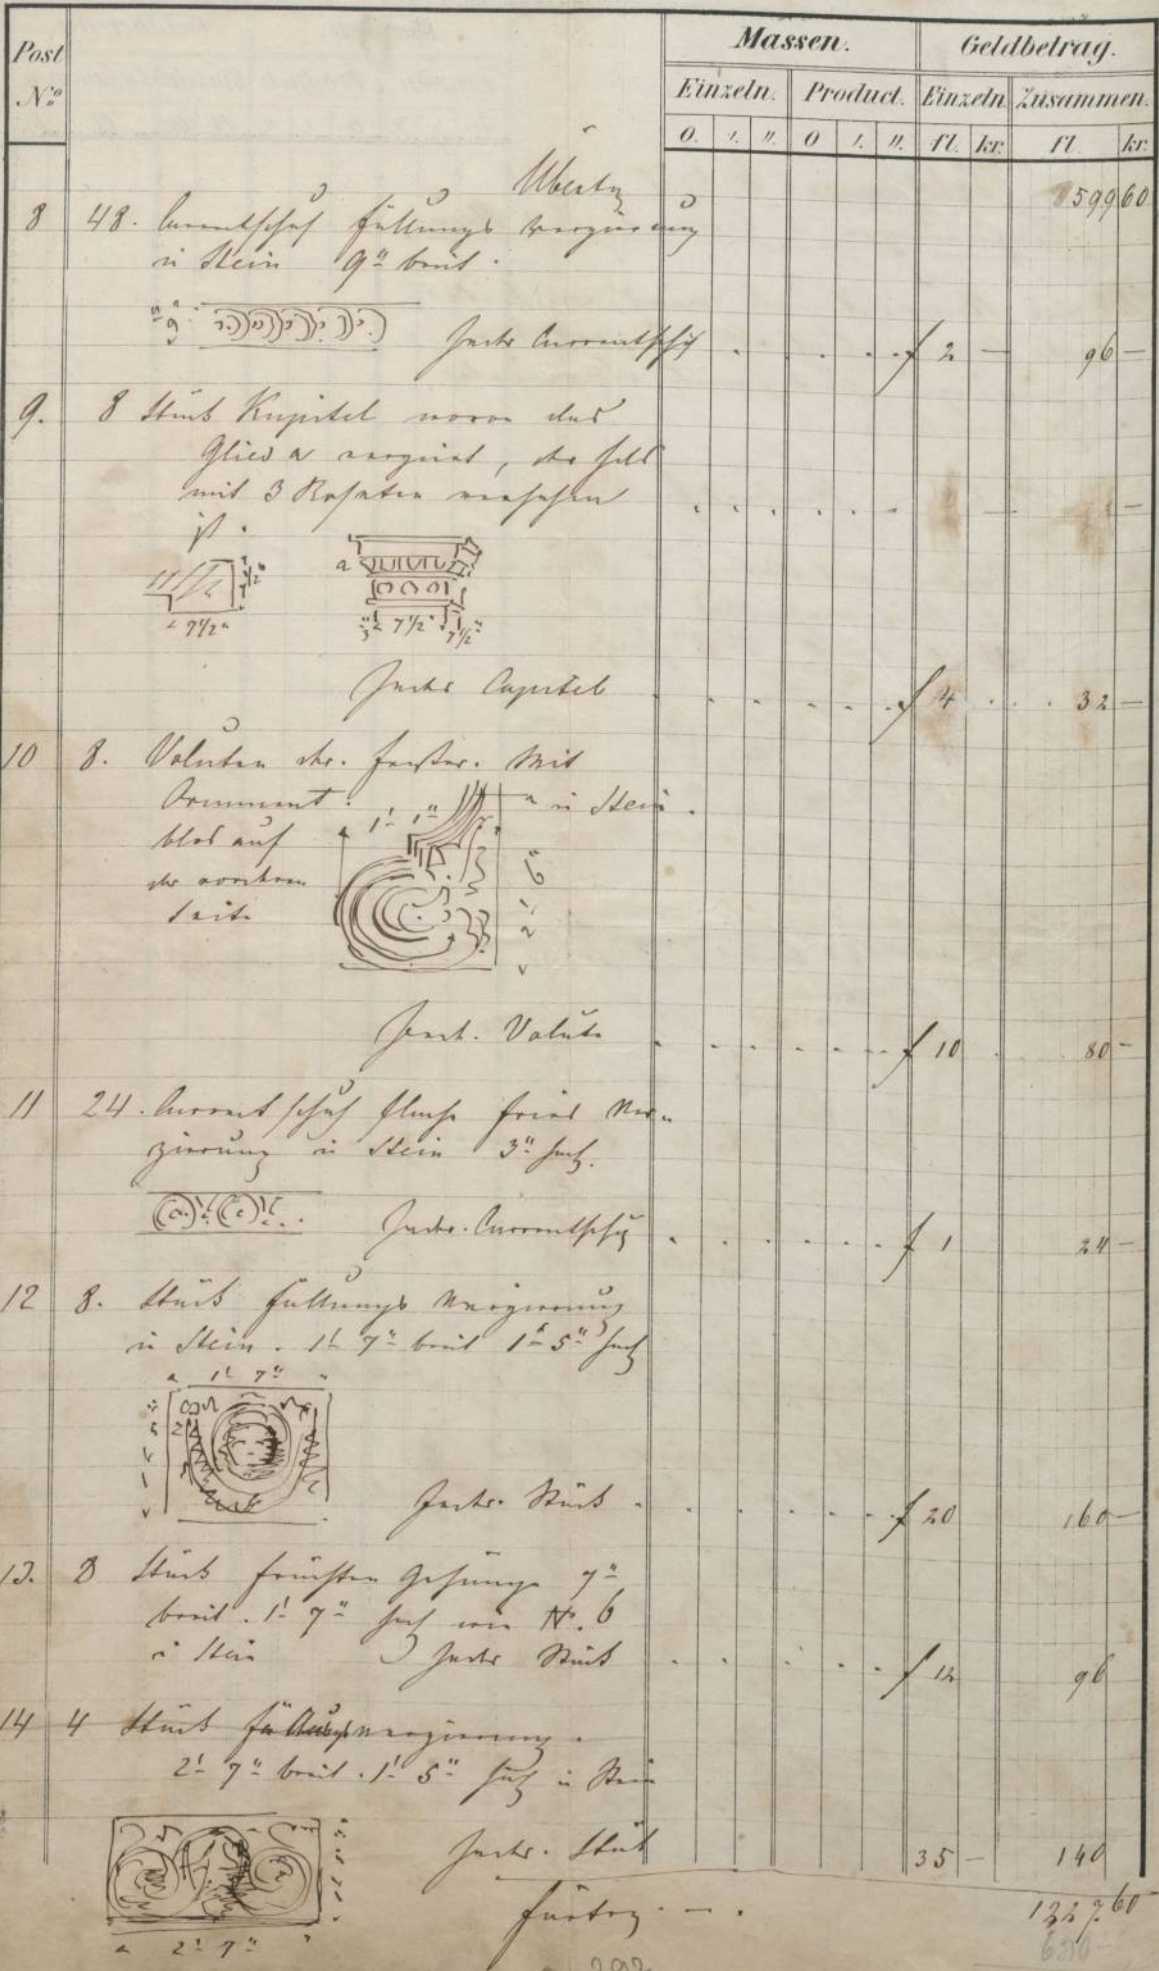 Post
No
Massen.
Geldbetrag.
Einzeln.
Product.
Einzeln
Zusammen.
0. ′. ″. 0 ′. ″. fl. kr. fl. kr.
Übertrag 599 60
8 48. Currentschuh Füllungs Verzierung
in Stein 9" breit.
9"
Jeder Currentschuh f 2 — 96 —
9. 8 Stück Kapitel wovon das
Glied a verziert, der Hals
mit 3 Rosetten versehen
ist.
a
7 1/2" 7 1/2"
Jedes Capitel f 4 32 —
10 8. Voluten der Fenster. Mit
Ornament in Stein.
blos auf 1' 1"
der vorderen 2' 6"
Seite
Jede Volute f 10 80 —
11 24. Currentschuh flache Fries Ver-
zierung in Stein 3" hoch.
Jeder Currentschuh f 1 24 —
12 8. Stück Füllungs Verzierung
in Stein. 1' 7" breit 1' 5" hoch
1' 7"
Jedes Stück f 20 160 —
13. 8 Stück Früchten Gehänge 7"
breit. 1' 7" hoch wie No. 6
in Stein Jedes Stück f 12 96
14 4 Stück Füllungsverzierung.
2' 7" breit. 1' 5" hoch in Stein
Jedes Stück 35 — 140
2' 7"
Fürtrag 1227.60
292